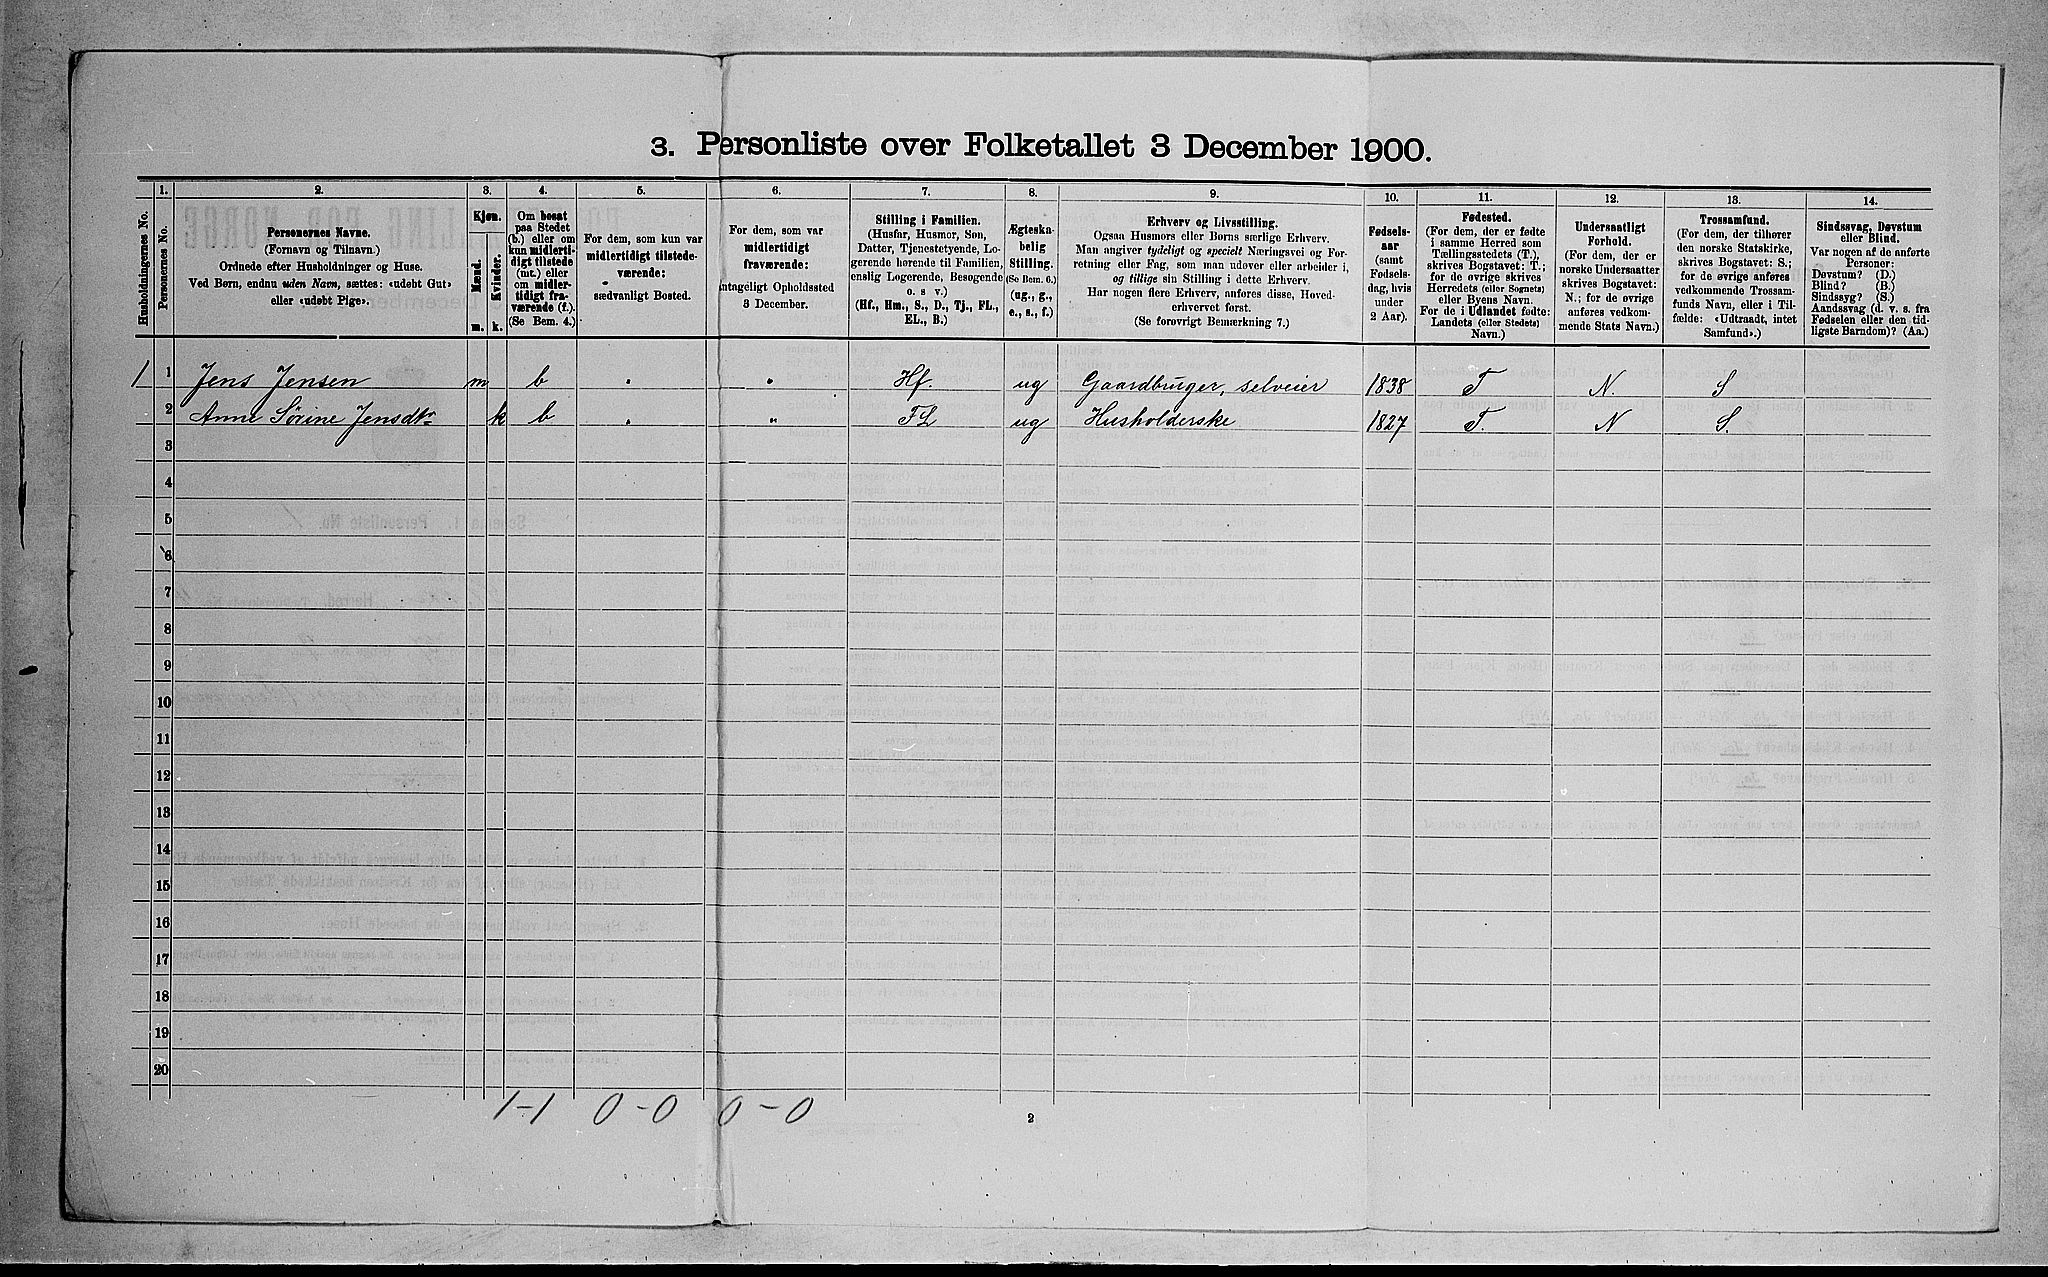 3. Personliste over Folketallet 3 December 1900.
1. 2. 3. 4. 5. 6. 7. 8. 9. 10. 11. 12. 13. 14.
Husholdningernes No.
Personernes No.
Personernes Navne.
(Fornavn og Tilnavn.)
Ordnede efter Husholdninger og Huse.
Ved Børn, endnu uden Navn, sættes: «udøbt Gut»
eller «udøbt Pige».
Kjøn.
Mænd.
Kvinder.
m. k.
Om bosat
paa Stedet
(b.) eller om
kun midlerti-
digt tilstede
(mt.) eller
om midler-
tidigt fra-
værende (f.).
(Se Bem. 4.)
For dem, som kun var
midlertidigt tilstede-
værende:
sædvanligt Bosted.
For dem, som var
midlertidigt
fraværende:
antageligt Opholdssted
3 December.
Stilling i Familien.
(Husfar, Husmor, Søn,
Datter, Tjenestetyende, Lo-
gerende hørende til Familien,
enslig Logerende, Besøgende
o. s v.)
(Hf., Hm., S., D., Tj., FL.,
EL., B.)
Ægteska-
belig
Stilling.
(Se Bem. 6.)
(ug., g.,
e., s., f.)
Erhverv og Livsstilling.
Ogsaa Husmors eller Børns særlige Erhverv.
Man angiver tydeligt og specielt Næringsvei og For-
retning eller Fag, som man udøver eller arbeider i,
og tillige sin Stilling i dette Erhverv.
Har nogen flere Erhverv, anføres disse, Hoved-
erhvervet først.
(Se forøvrigt Bemærkning 7.)
Fødsels-
aar
(samt
Fødsels-
dag, hvis
under
2 Aar).
Fødested.
(For dem, der er fødte
i samme Herred som
Tællingsstedets (T.),
skrives Bogstavet: T.;
for de øvrige skrives
Herredets (eller Sognets)
eller Byens Navn.
For de i Udlandet fødte:
Landets (eller Stedets)
Navn.)
Undersaatligt
Forhold.
(For dem, der er
norske Undersaatter
skrives Bogstavet:
N.; for de øvrige
anføres vedkom-
mende Stats Navn.)
Trossamfund.
(For dem, der tilhører
den norske Statskirke,
skrives Bogstavet: S.;
for de øvrige anføres
vedkommende Trossam-
funds Navn, eller i Til-
fælde: «Udtraadt, intet
Samfund».)
Sindssvag, Døvstum
eller Blind.
Var nogen af de anførte
Personer:
Døvstum? (D.)
Blind? (B.)
Sindssyg? (S.)
Aandssvag (d. v. s. fra
Fødselen eller den tid-
ligste Barndom)? (Aa.)
1 1 Jens Jensen m b " " Hf. ug Gaardbruger, selveier 1838 T N. S
2 Anne Sørine Jensdtr k b " " FL ug Husholderske 1827 T. N S.
3
4
5
6
7
8
9
10
11
12
13
14
15
16
17
18
19
20
1-1 0-0 0-0
2